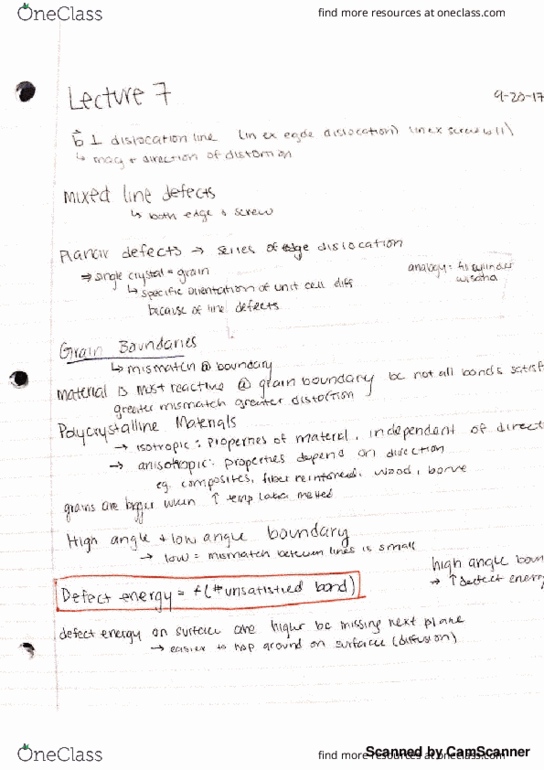 OneClass
find more resources at oneclass.com
Lecture 7
9-20-17
b ⊥ dislocation line (in ex egde dislocation) (in ex screw b ||)
↳ mag + direction of distortion
mixed line defects
↳ both edge & screw
Planar defects → series of edge dislocation
⇒ single crystal = grain
analogy:
↳ specific orientation of unit cell diff
because of line defects
Grain Boundaries
↳ mismatch @ boundary
material is most reactive @ grain boundary bc not all bonds satisf
greater mismatch greater distortion
Polycrystalline Materials
→ isotropic: properties of material, independent of direct
→ anisotropic: properties depend on direction
eg. composites, fiber reinforced, wood, bone
grains are bigger when ↑ temp
High angle + low angle boundary
→ low = mismatch between lines is small
high angle boun
→ ↑ defect energy
Defect energy = f(# unsatisfied bond)
defect energy on surface are higher bc missing next plane
→ easier to hop around on surface (diffusion)
OneClass
find more resources at oneclass.com
Scanned by CamScanner